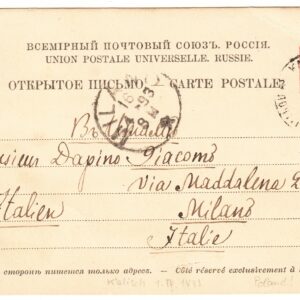 ВСЕМІРНЫЙ ПОЧТОВЫЙ СОЮЗЪ. РОССІЯ.
UNION POSTALE UNIVERSELLE. RUSSIE.
ОТКРЫТОЕ ПИСЬМО CARTE POSTALE
sieur Dapino Giacomo
Italien Via Maddalena
Milano
Italie
сторонѣ пишется только адресъ. — Côté réservé exclusivement à
Kalisch
Poland